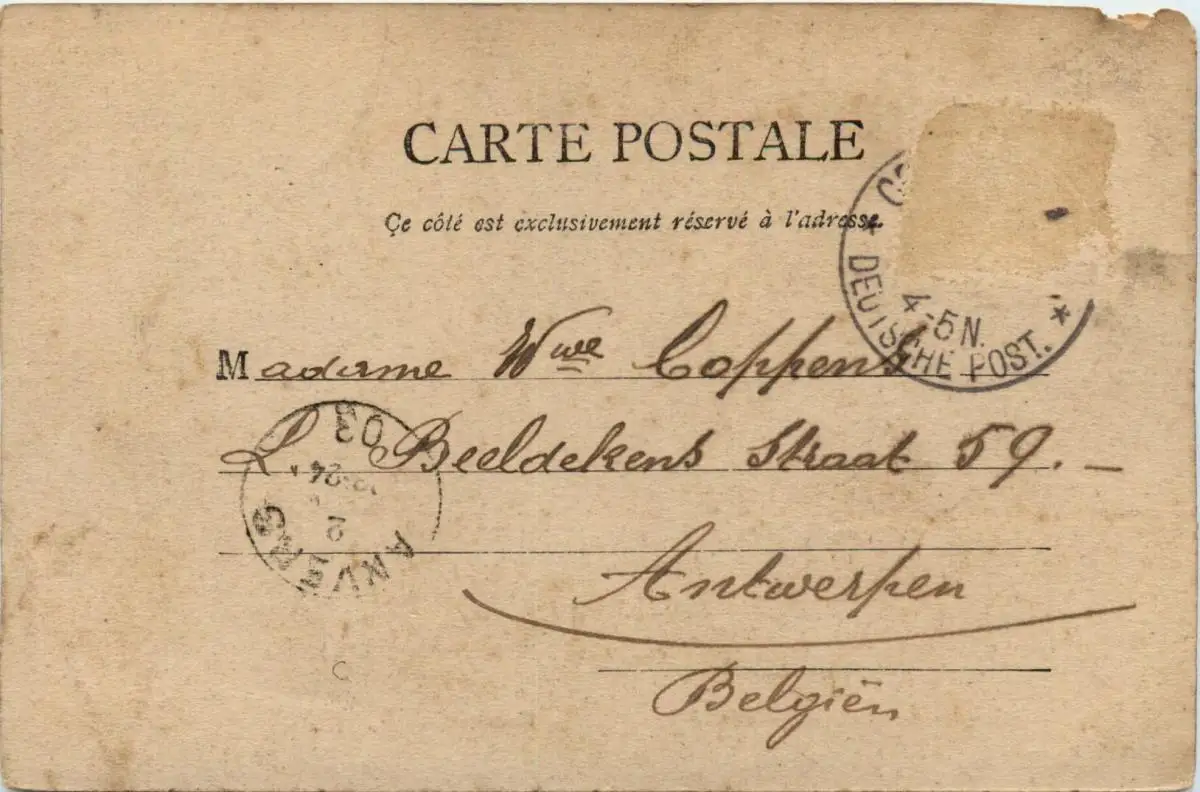 CARTE POSTALE
Ce côté est exclusivement réservé à l'adresse.
4-5N.
* DEUTSCHE POST. *
Madame Wwe Coppens
L. Beeldekens Straat 59. —
03
24
2
ANVERS
Antwerpen
Belgiën